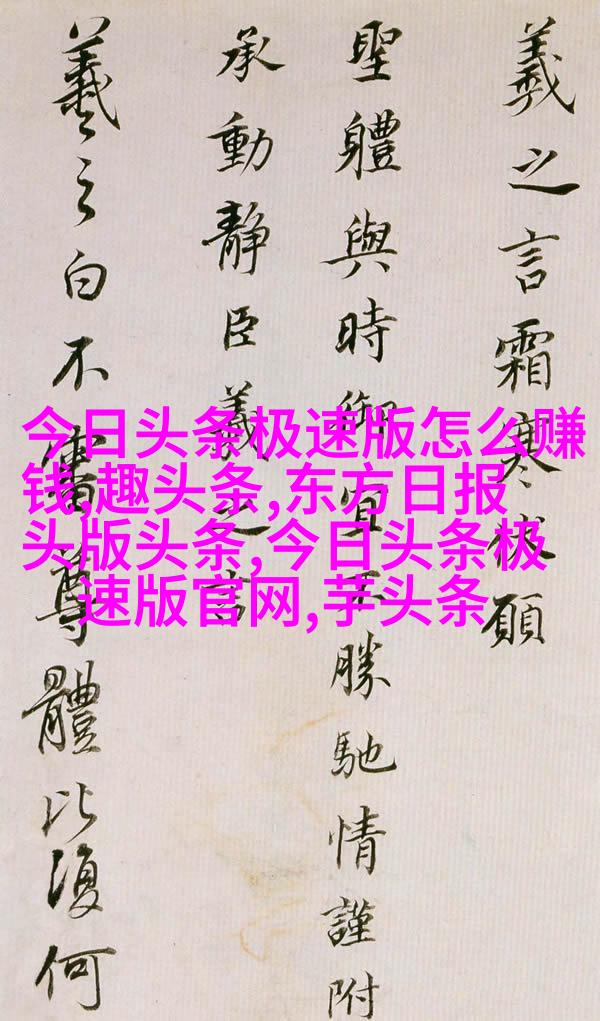 義之言霜寒伏願
聖體與時御宜不勝馳情謹附
承動靜臣羲之言
羲之白不審尊體比復何
今日头条极速版怎么赚
钱,趣头条,东方日报
头版头条,今日头条极
速版官网,芋头条